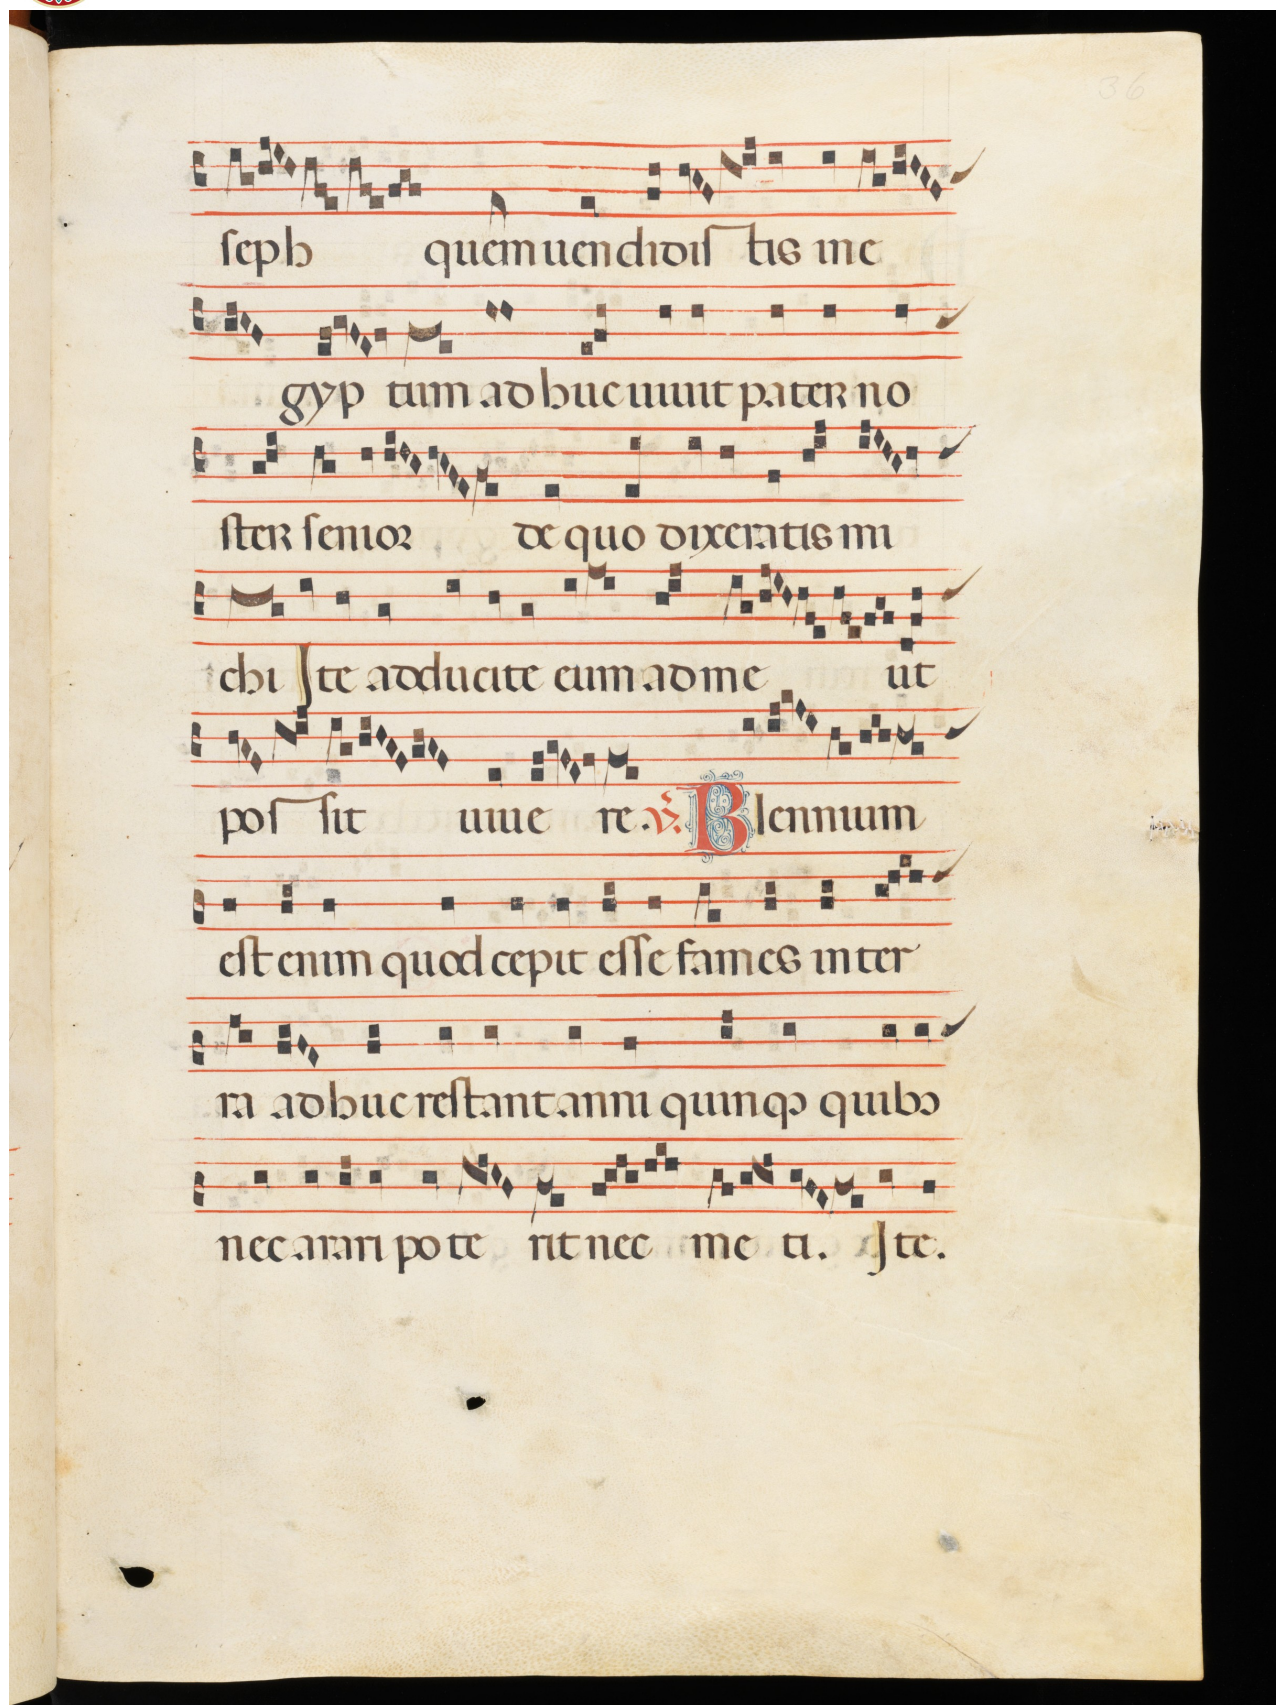 36
seph quem uendidistis in e
gyp tum ad huc uiuit pater no
ster senior de quo dixeratis mi
chi Ite adducite eum ad me ut
pos sit uiue re. V. Blennium
est enim quod cepit esse fames in ter
ra adhuc restant anni quinqꝫ quibꝰ
nec arari pote rit nec me ti. Ite.